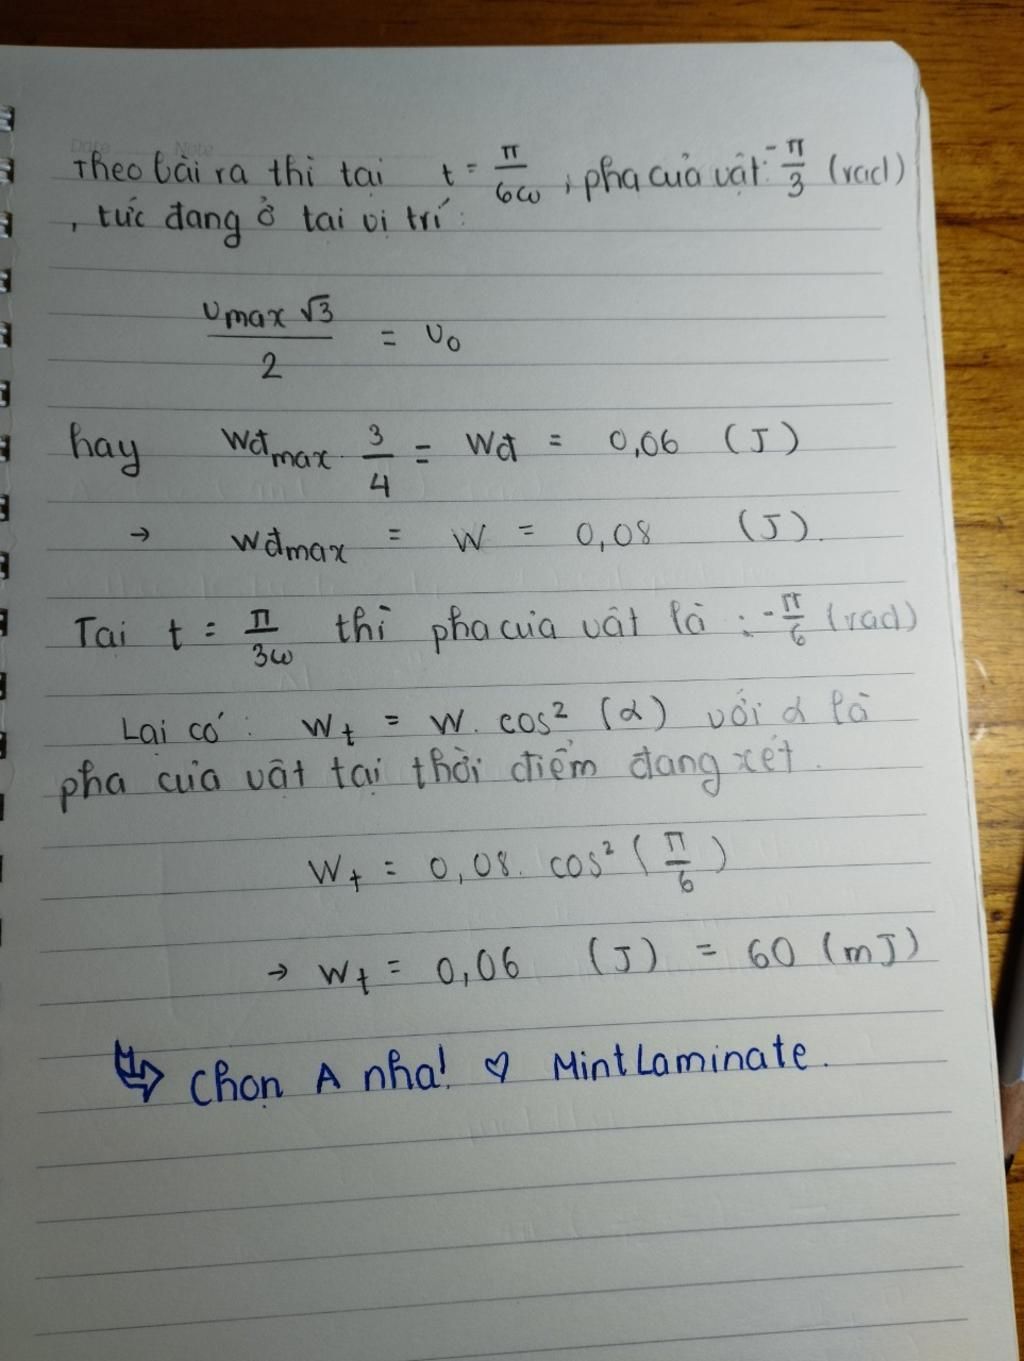 Date Note
Theo bài ra thì tại t = π/6ω, pha của vật: -π/3 (rad)
, tức đang ở tại vị trí:
vmax √3 / 2 = v0
hay Wđmax . 3/4 = Wđ = 0,06 (J)
→ Wđmax = W = 0,08 (J).
Tại t = π/3ω thì pha của vật là : -π/6 (rad)
Lại có: Wt = W. cos² (α) với α là
pha của vật tại thời điểm đang xét.
Wt = 0,08. cos² (π/6)
→ Wt = 0,06 (J) = 60 (mJ)
Chọn A nha! ♡ MintLaminate.